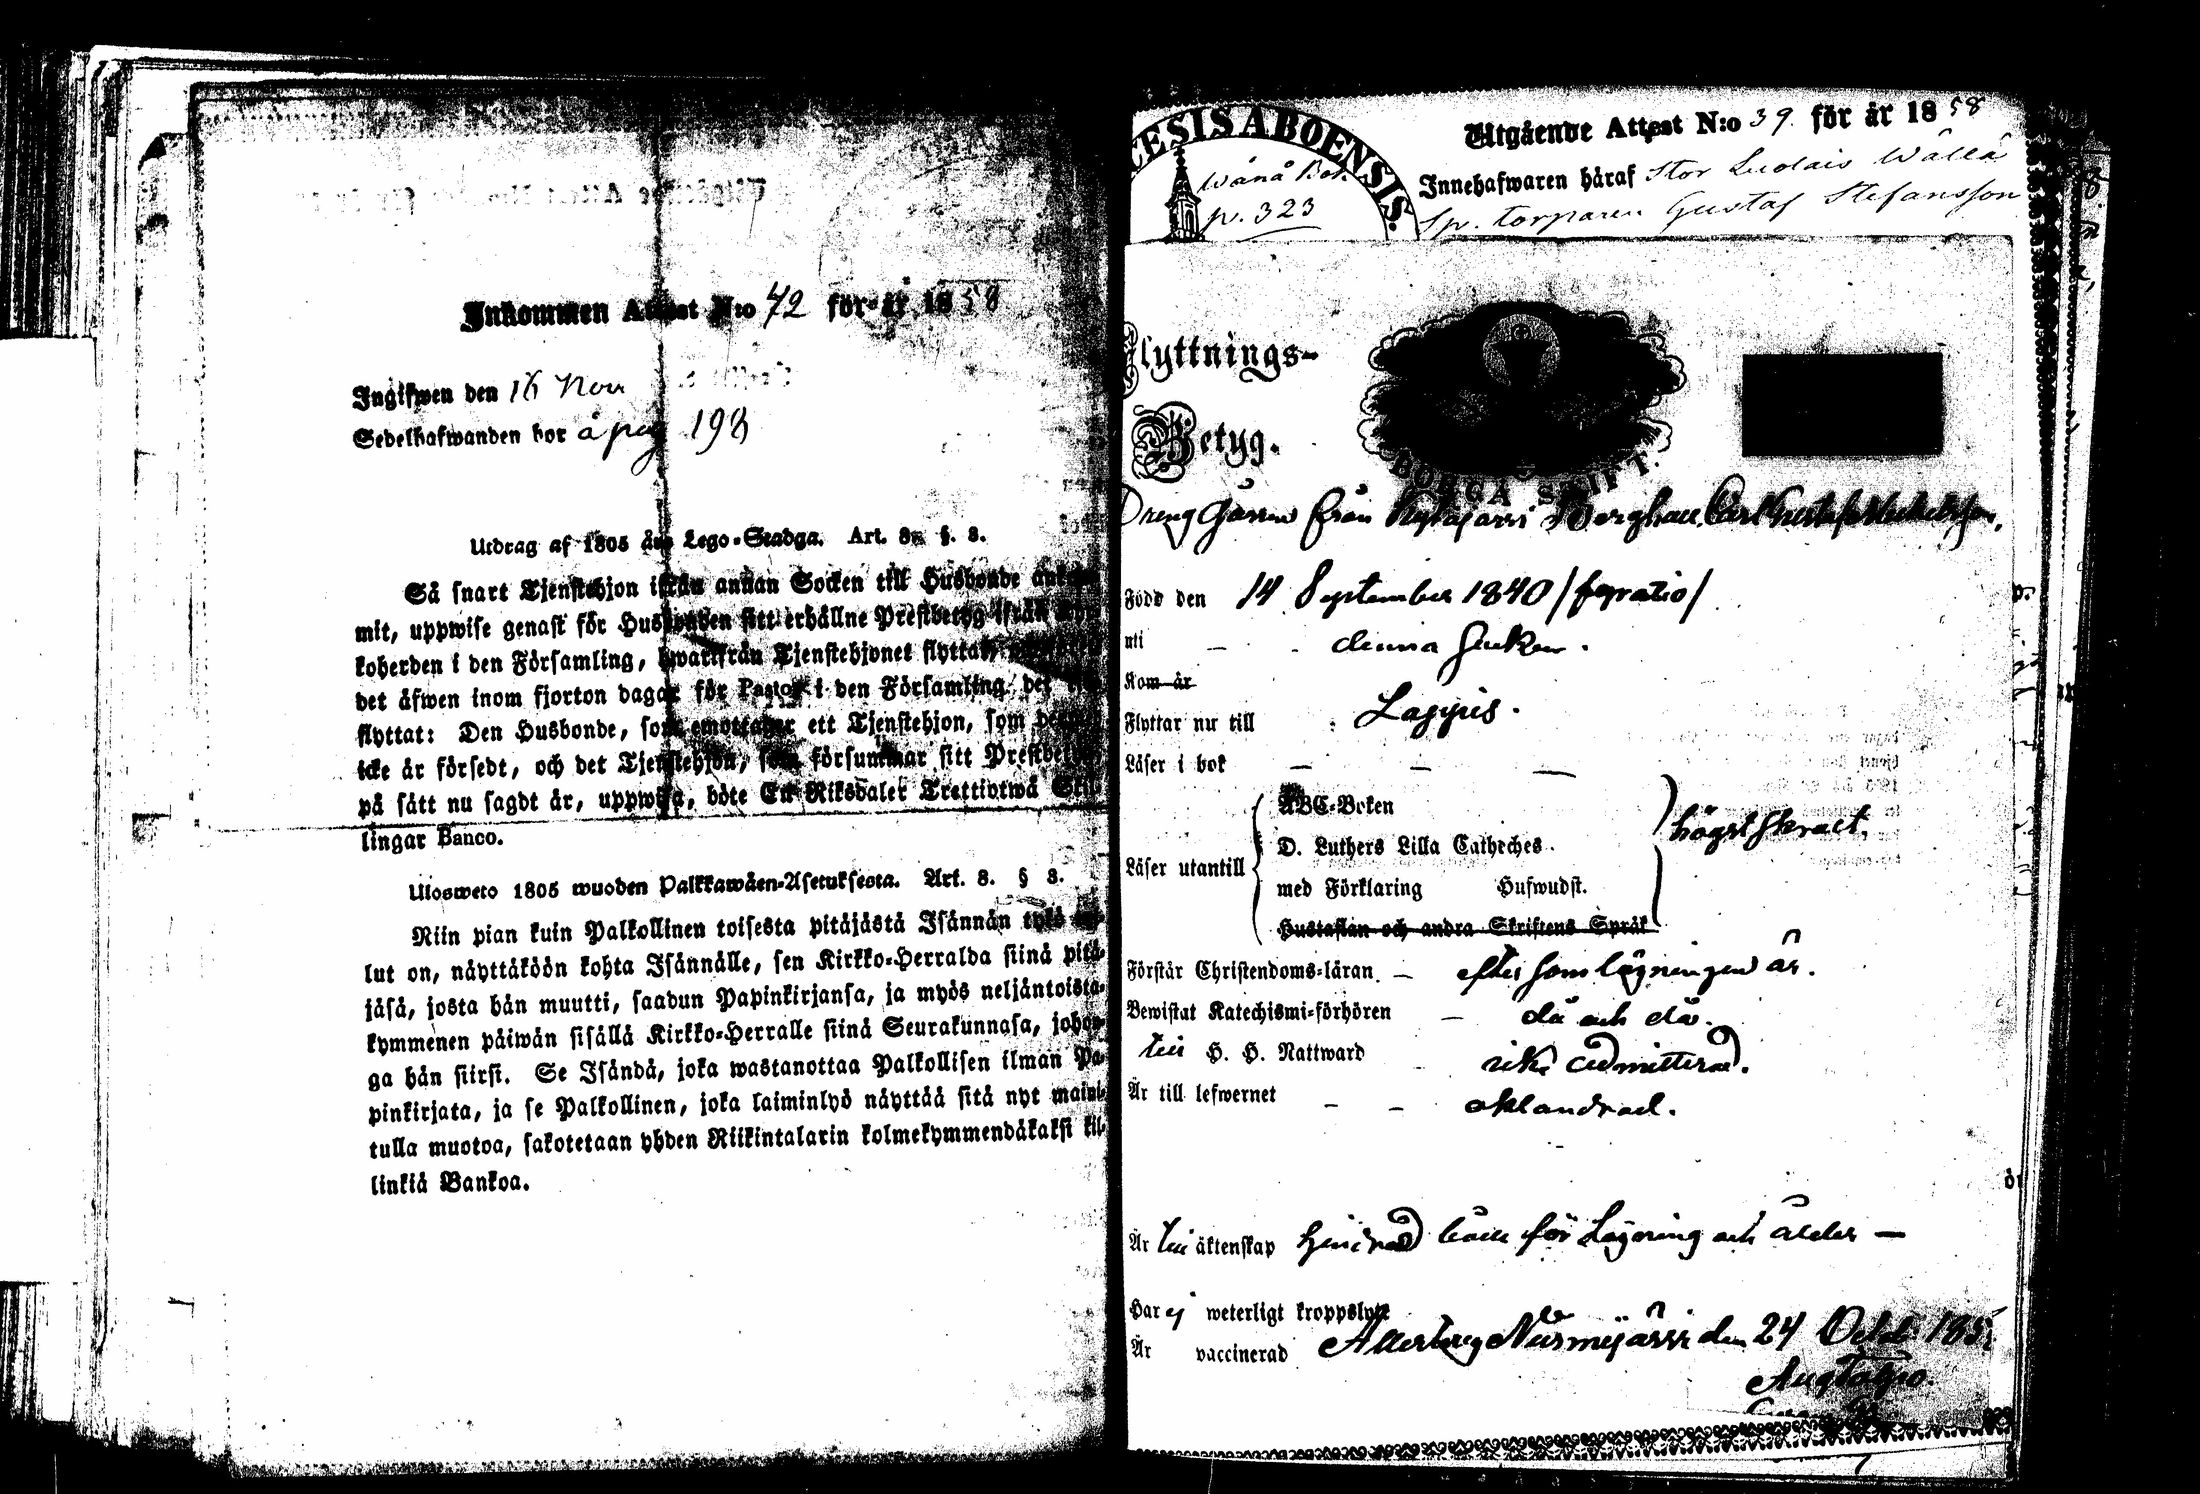 Inkommen Attest N:o 72 för år 1858
Ingifwen den 16 Nov
Sedelhafwanden bor å pag 198
Utdrag af 1805 års Lego-Stadga. Art. 8. §. 8.
Så snart Tjenstehjon ifrån annan Socken till Husbonde
mit, uppwise genast för Husbonden sitt erhållne Prestbetyg ifrån
koherden i den Församling, hwarifrån Tjenstehjonet flyttat,
det äfwen inom fjorton dagar för Pastor i den Församling det
flyttat: Den Husbonde, som emottager ett Tjenstehjon, som
icke är försedt, och det Tjenstehjon, som försummar sitt Prestbetyg
på sätt nu sagdt är, uppwisa, böte En Riksdaler Trettiotwå Skil-
lingar Banco.
Ulosweto 1805 wuoden Palkkawäen-Asetuksesta. Art. 8. § 8.
Niin pian kuin Palkollinen toisesta pitäjästä Isännän tykö
lut on, näyttäköön kohta Isännälle, sen Kirkko-Herralda siinä pitä-
jäsä, josta hän muutti, saadun Papinkirjansa, ja myös neljäntoista-
kymmenen päiwän sisällä Kirkko-Herralle siinä Seurakunnasa, johon-
ga hän siirsi. Se Isändä, joka wastanottaa Palkollisen ilman Pa-
pinkirjata, ja se Palkollinen, joka laiminlyö näyttää sitä nyt maini-
tulla muotoa, sakotetaan yhden Riikintalarin kolmekymmendäkaksi kil-
linkiä Bankoa.
ESIS ABOENSIS.
Wånå Bok
p. 323
Utgående Attest N:o 39. för år 1858
Innehafwaren häraf Stor Ludais Wällä
Sp. torparen Gustaf Stefansson
Flyttnings-
Betyg.
BORGÅ STIFT.
Dreng Gåssen från Kytäjärvi Carl Gustaf
Född den 14 September 1840
uti denna Socken.
Kom år
Flyttar nu till Lappis.
Läser i bok
ABC-Boken
D. Luthers Lilla Catheches.
Läser utantill
med Förklaring Hufwudst.
Hustaflan och andra Skriftens Språk
högst svact.
Förstår Christendoms-läran efter som läsningen är.
Bewistat Katechismi-förhören då och då.
till H. H. Nattward icke admitterad.
Är till lefwernet oklandrad.
Är till äktenskap hindrad både för Läsning och ålder
Har ej weterligt kroppslyte
Är vaccinerad
Nurmijärvi den 24 Octob. 185